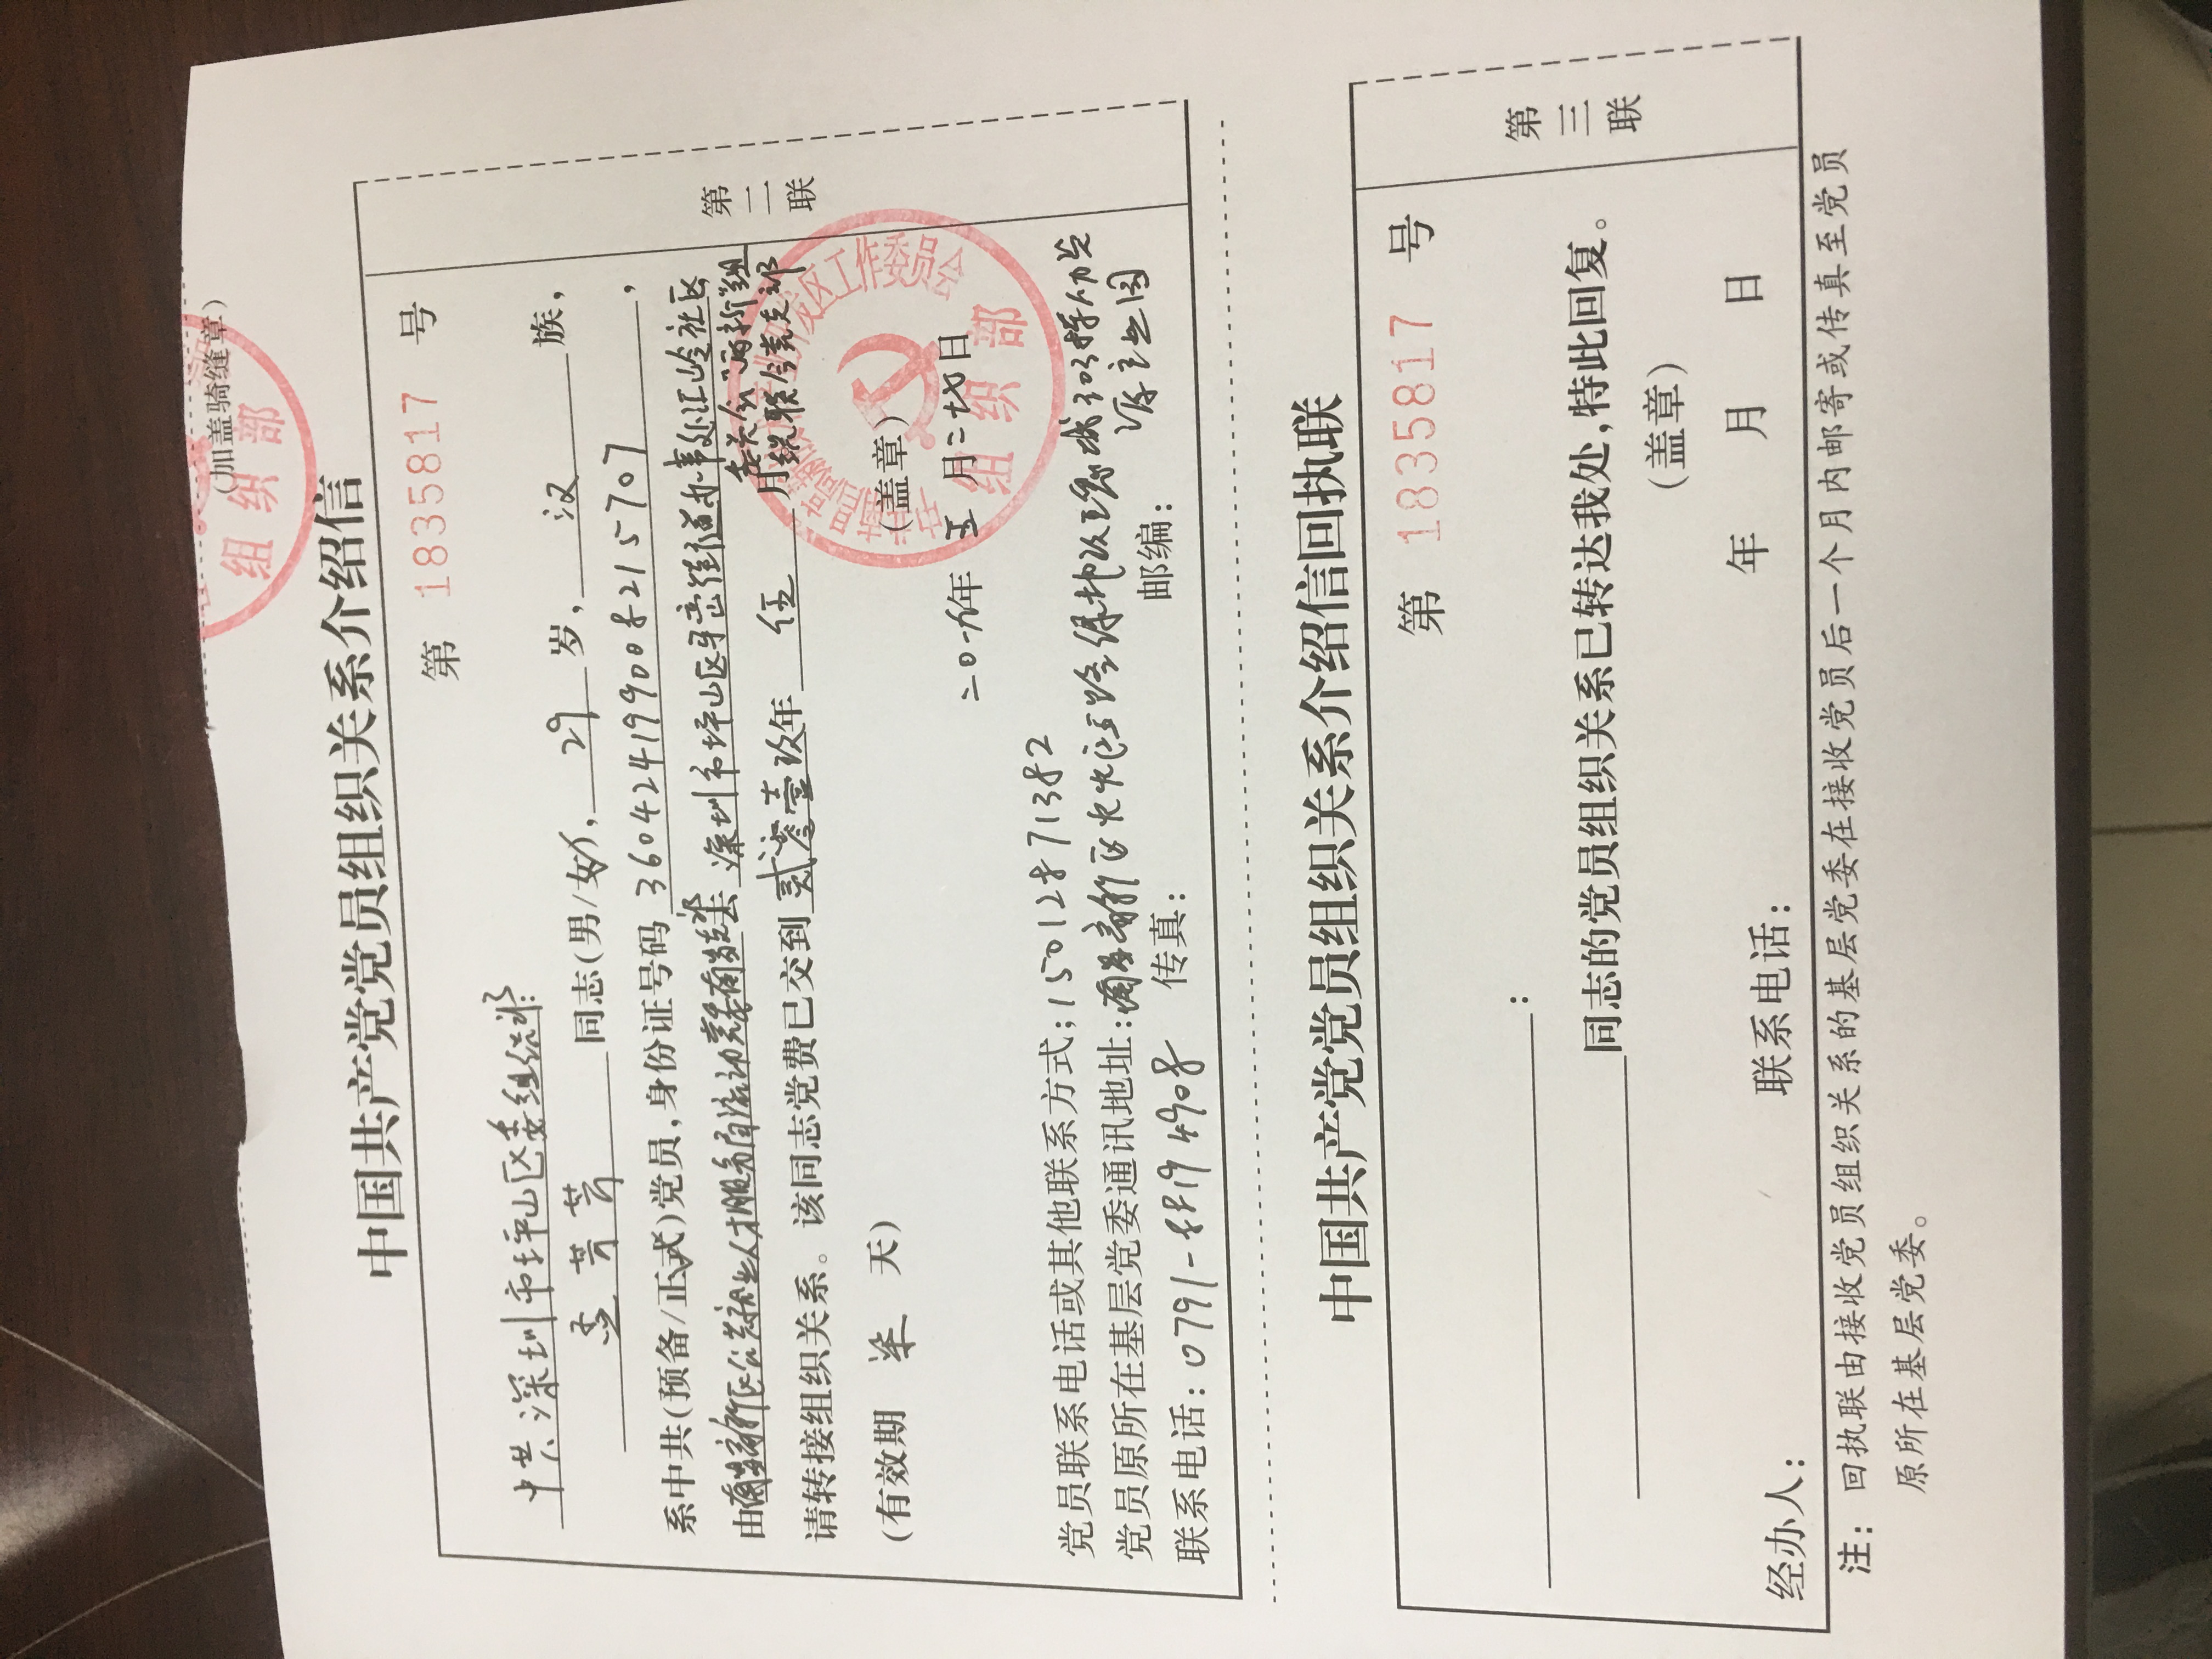 (加盖骑缝章)
组织部
中国共产党党员组织关系介绍信
第 1835817 号
中共深圳市坪山区委组织部:
孟芳芳 同志(男/女), 29 岁, 汉 族,
系中共(预备/正式)党员,身份证号码 360424199008215707,
由南昌高新区公共就业人才服务局流动党委南昌支部去 深圳市坪山区马峦街道办事处汇岭社区
委员会"两新"组
织联合党支部
请转接组织关系。该同志党费已交到 贰零壹玖年 伍 月
(有效期 柒 天)
(盖章)
中共南昌高新技术产业开发区工作委员会
组织部
二〇一九年 五 月二十七日
党员联系电话或其他联系方式:15012871382
党员原所在基层党委通讯地址:南昌高新区火炬五路绿地 城303栋人力资
源产业园
联系电话:0791-88194908 传真: 邮编:
第二联
中国共产党党员组织关系介绍信回执联
第 1835817 号
:
同志的党员组织关系已转达我处,特此回复。
(盖章)
年 月 日
经办人: 联系电话:
第三联
注: 回执联由接收党员组织关系的基层党委在接收党员后一个月内邮寄或传真至党员
原所在基层党委。